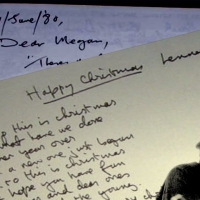 /June/'80,
Dear Megan,
"There
Happy Christmas Lenno
this is christmas
what have we done
year over
a new one just begun
this is christmas
hope you have fun
and dear ones
the young.